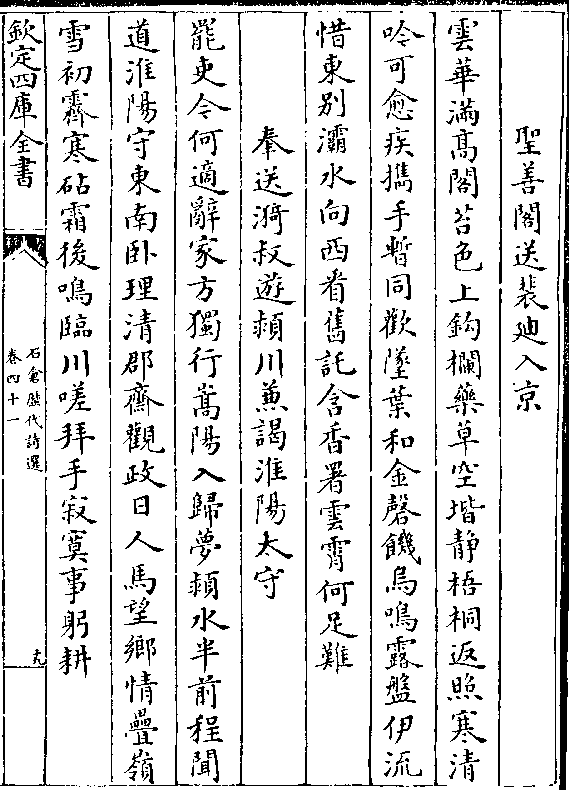 聖善閣送裴廸入京
雲華滿髙閣苔色上鈎欄藥草空堦静梧桐返照寒清
吟可愈疾擕手暫同歡墜葉和金磬饑烏鳴露盤伊流
惜東别灞水向西㸔舊託含香署雲霄何足難
奉送漪叔遊潁川兼謁淮陽太守
罷吏今何適辭家方獨行嵩陽入歸夢潁水半前程聞
道淮陽守東南卧理清郡齋觀政日人馬望鄉情疊嶺
雪初霽寒砧霜後鳴臨川嗟拜手寂寞事躬耕
欽定四庫全書
石倉歴代詩選
卷四十一
十九